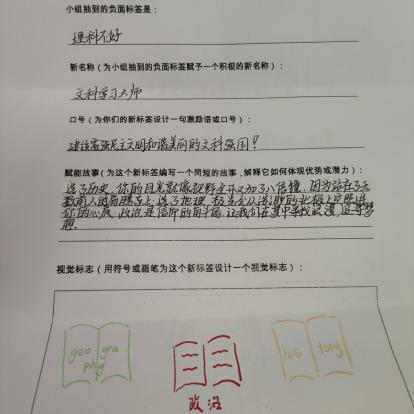 小组抽到的负面标签是：
理科不好
新名称（为小组抽到的负面标签赋予一个积极的新名称）：
文科学习大师
口号（为你们的新标签设计一句激励语或口号）：
建设富强民主文明和谐美丽的文科强国！
赋能故事（为这个新标签编写一个简短的故事，解释它如何体现优势或潜力）：
选了历史，你的目光就像视野全开又加了八倍镜，因为站在了无
数前人的肩膀上，选了地理，极光会从浩渺的北极上空照进
你的心底，政治是信仰的自
让我们在其中寻找浪漫，追寻梦
想。
视觉标志（用符号或画笔为这个新标签设计一个视觉标志）：
geo gra
phy
政治
his tory